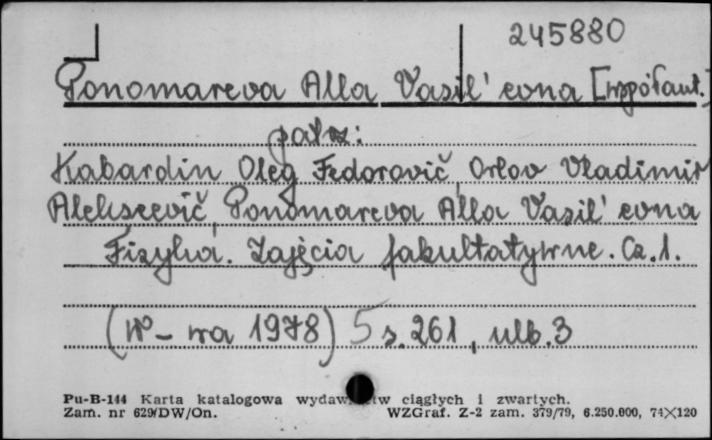 245880
Ponomareva Alla Vasil' evna [współaut.]
patrz:
Kabardin Oleg Fedorovič, Orlov Vladimir
Alekseevič, Ponomareva Alla Vasil' evna
Fizyka. Zajęcia fakultatywne. Cz. 1.
(W-wa 1978) 5 s. 261, nlb. 3
Pu-B-144 Karta katalogowa wydaw tw ciągłych i zwartych.
Zam. nr 629/DW/On. WZGraf. Z-2 zam. 379/79, 6.250.000, 74×120